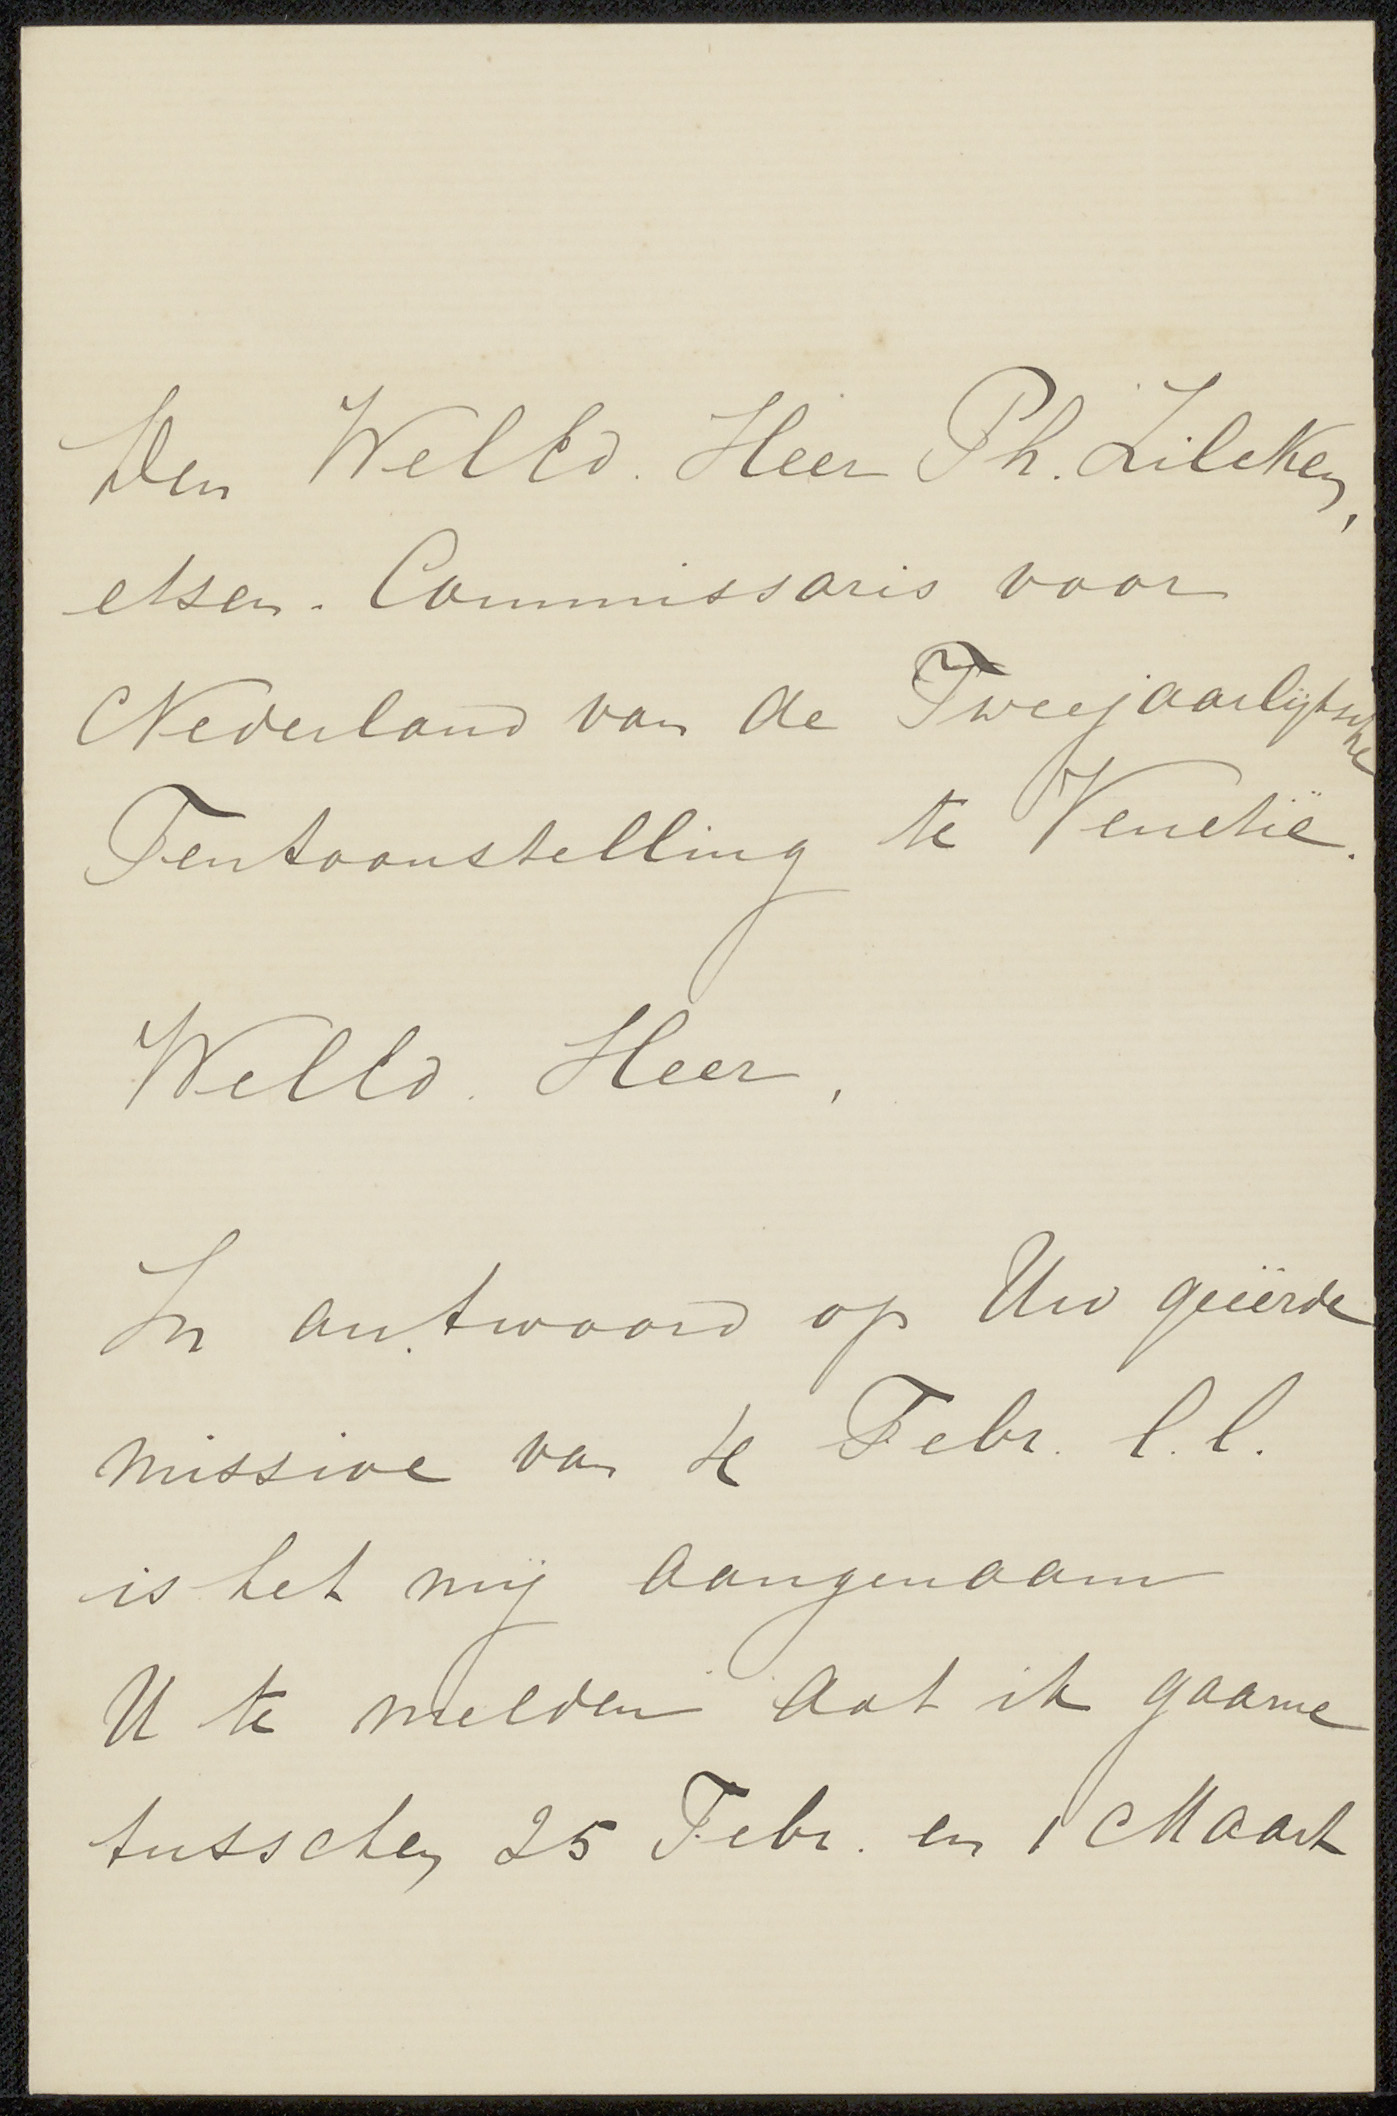 Den WelEd. Heer Ph. Zilcken,
etser. Commissaris voor
Nederland van de Tweejaarlijksche
Tentoonstelling te Venetië.
WelEd. Heer,
In antwoord op Uw geëerde
missive van 4 Febr. l.l.
is het mij aangenaam
U te melden dat ik gaarne
tusschen 25 Febr. en 1 Maart